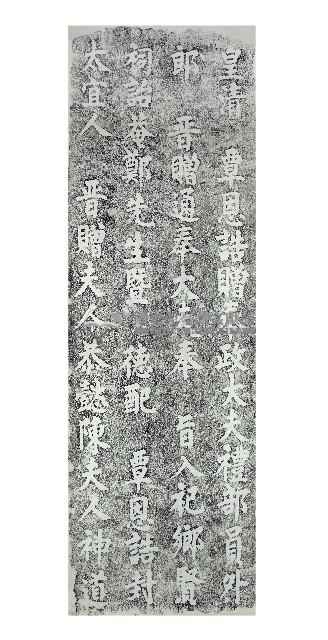 皇清 覃恩誥贈奉政大夫禮部員外
郎 晉贈通奉大夫奉 旨入祀鄉賢
祠諡奉鄭先生暨 德配 覃恩誥封
太宜人 晉贈夫人恭懿陳夫人神道